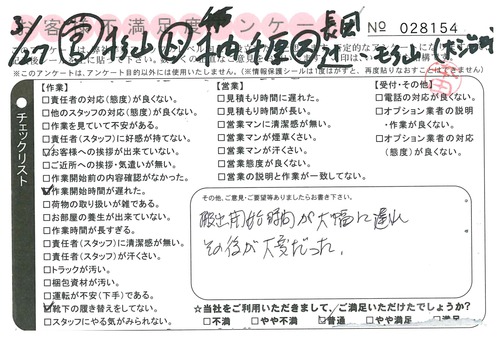 お客様不満足度アンケート
No 028154
3/27
※このアンケートは、アンケート目的以外には使用いたしません。(※情報保護シールは1度はがすと、再度貼りなおすことはできません)
チェックリスト
【作業】
□責任者の対応(態度)が良くない。
□他のスタッフの対応(態度)が良くない。
□作業を見ていて不安がある。
□責任者(スタッフ)に好感が持てない。
☑お客様への挨拶が出来ていない。
□ご近所への挨拶・気遣いが無い。
□作業開始前の内容確認がなかった。
☑作業開始時間が遅れた。
□荷物の取り扱いが雑である。
□お部屋の養生が出来ていない。
□作業時間が長すぎる。
□責任者(スタッフ)に清潔感が無い。
□責任者(スタッフ)が汗くさい。
□トラックが汚い。
□梱包資材が汚い。
□運転が不安(下手)である。
☑靴下の履き替えをしてない。
□スタッフにやる気がみられない。
【営業】
□見積もり時間に遅れた。
□見積もり時間が長い。
□営業マンに清潔感が無い。
□営業マンが煙草くさい。
□営業マンが汗くさい。
□営業態度が良くない。
□営業の説明と作業が一致してない。
【受付・その他】
□電話の対応が良くない。
□オプション業者の説明
・作業が良くない。
□オプション業者の対応
(態度)が良くない。
その他、ご意見・ご要望等ありましたらお書き下さい。
搬出開始時間が大幅に遅れ
その後が大変だった。
☆当社をご利用いただきまして、ご満足いただけたでしょうか?
□不満 □やや不満 ☑普通 □やや満足 □満足